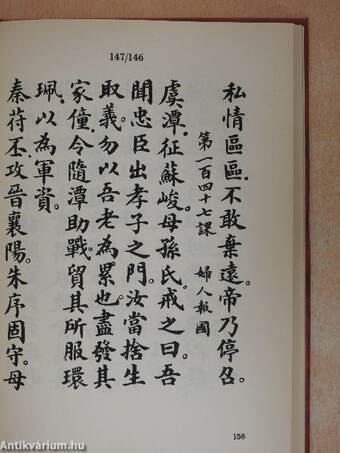 147/146
私情區區、不敢棄遠。帝乃停召。
第一百四十七課 婦人報國
虞潭、征蘇峻。母孫氏、戒之曰。吾
聞忠臣出孝子之門。汝當捨生
取義。勿以吾老為累也。盡發其
家僮、令隨潭助戰。貿其所服環
珮、以為軍資。
秦苻丕、攻晉襄陽。朱序固守。母
156
Antikvárium.hu